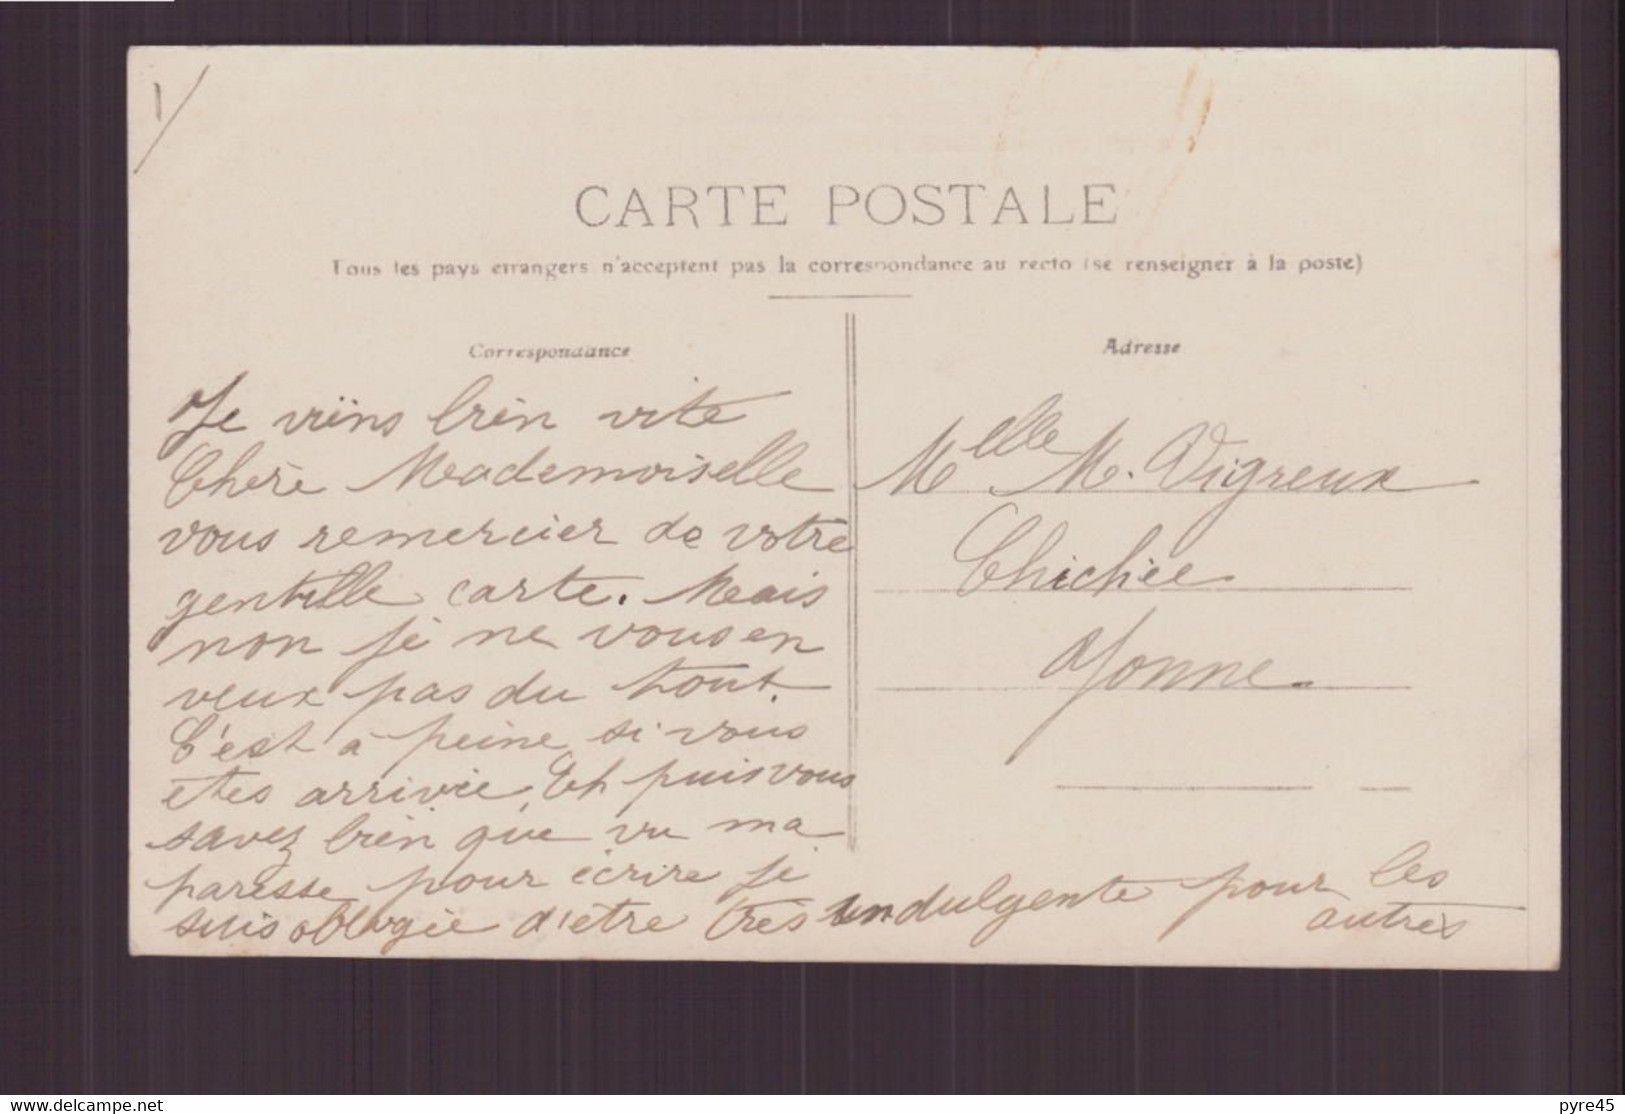 1/
CARTE POSTALE
Tous les pays étrangers n'acceptent pas la correspondance au recto (se renseigner à la poste)
Correspondance
Je viens bien vite
Chère Mademoiselle
vous remercier de votre
gentille carte. Mais
non je ne vous en
veux pas du tout.
C'est à peine si vous
etes arrivée. Et puis vous
savez bien que vu ma
paresse pour écrire je
suis obligée d'être très indulgente pour les
autres
Adresse
Melle M. Vigreux
Chichée
Yonne
www.delcampe.net
pyre45